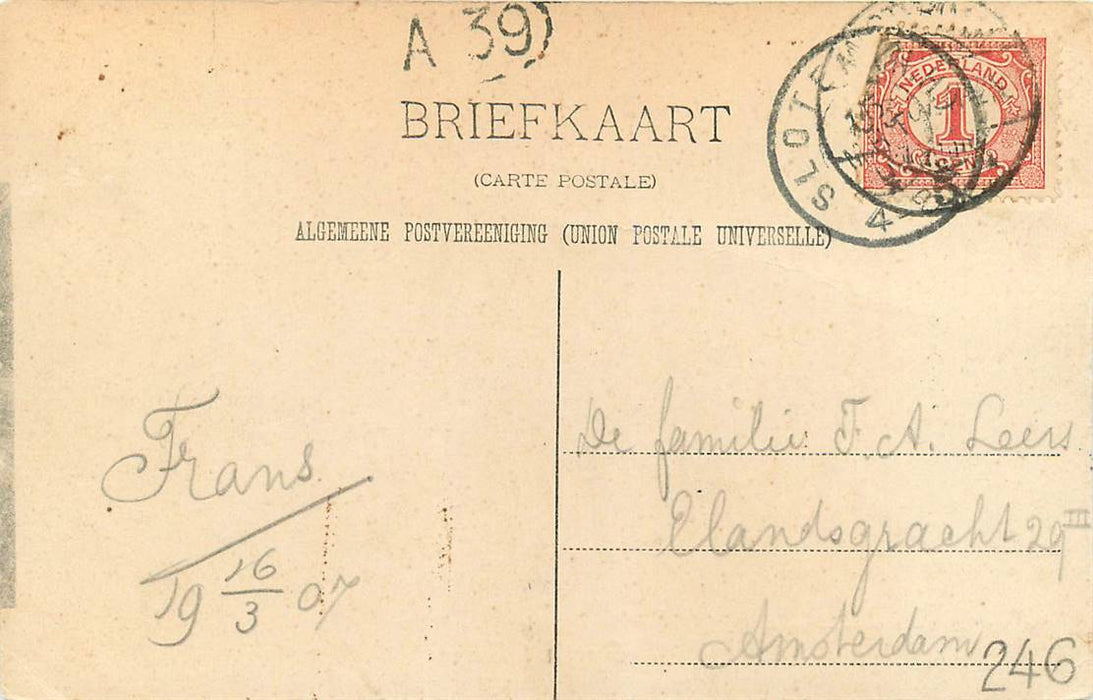 A 39
BRIEFKAART
(CARTE POSTALE)
ALGEMEENE POSTVEREENIGING (UNION POSTALE UNIVERSELLE)
NEDERLAND
1
SLOTEN
Frans
19 16/3 07
De familie F. A. Leers
Elandsgracht 29 III
Amsterdam
246